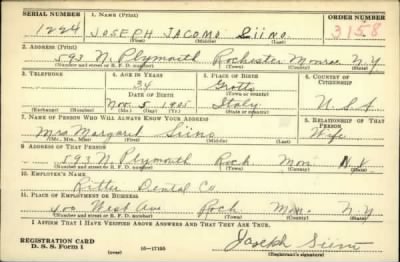 SERIAL NUMBER 1. NAME (Print) ORDER NUMBER
1224 JOSEPH JACOMO Siino 3158
(First) (Middle) (Last)
2. ADDRESS (Print)
593 N. Plymouth Rochester Monroe N.Y
(Number and street or R. F. D. number) (Town) (County) (State)
3. TELEPHONE 4. AGE IN YEARS 5. PLACE OF BIRTH 6. COUNTRY OF CITIZENSHIP
34 Grotte
(Town or county)
DATE OF BIRTH
Nov. 5 1905 Italy U.S.A
(Exchange) (Number) (Mo.) (Day) (Yr.) (State or country)
7. NAME OF PERSON WHO WILL ALWAYS KNOW YOUR ADDRESS 8. RELATIONSHIP OF THAT PERSON
Mrs Margaret Siino Wife
(Mr., Mrs., Miss) (First) (Middle) (Last)
9. ADDRESS OF THAT PERSON
593 N. Plymouth Roch Mon N.Y
(Number and street or R. F. D. number) (Town) (County) (State)
10. EMPLOYER'S NAME
Ritter Dental Co
11. PLACE OF EMPLOYMENT OR BUSINESS
400 West Ave Roch Mon. N.Y
(Number and street or R. F. D. number) (Town) (County) (State)
I AFFIRM THAT I HAVE VERIFIED ABOVE ANSWERS AND THAT THEY ARE TRUE.
REGISTRATION CARD
D. S. S. Form 1 (over) 16—17105 Joseph Siino
(Registrant's signature)